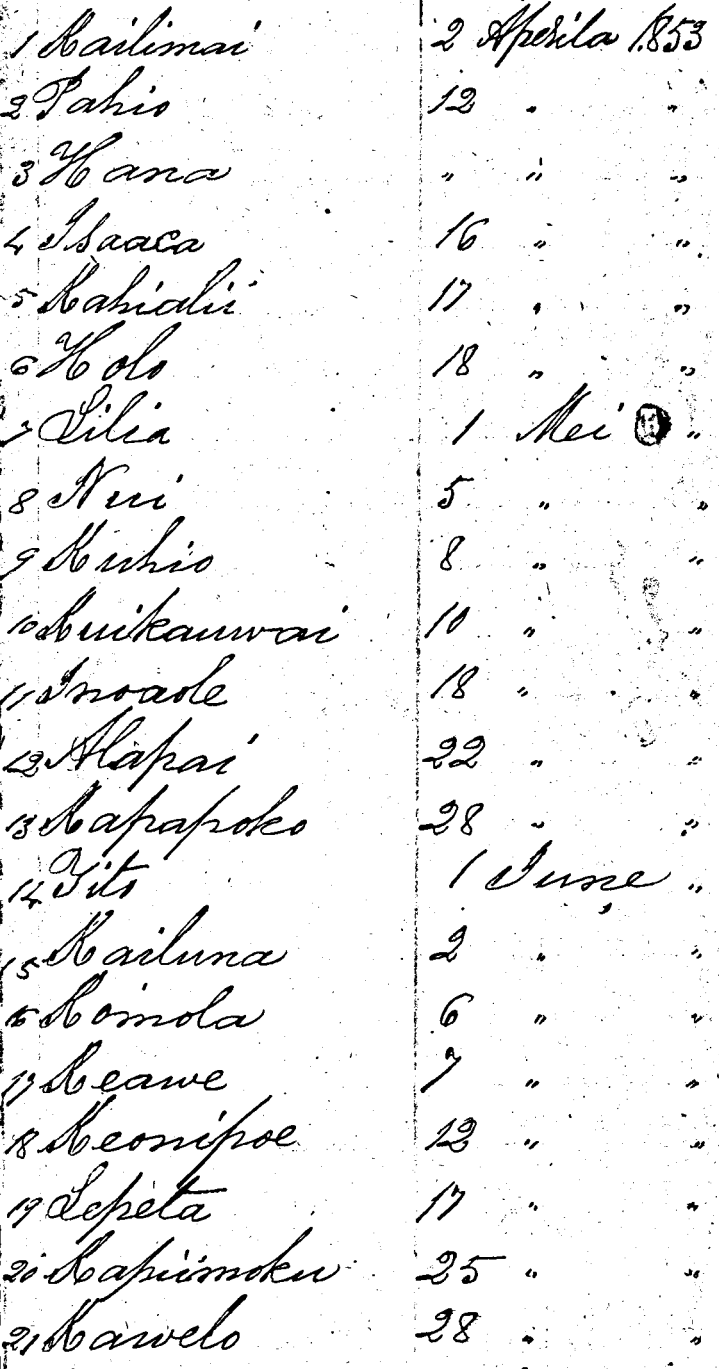 1 Kailimai 2 Aperila 1853
2 Pahio 12 " "
3 Hana " " "
4 Isaaca 16 " "
5 Kahialii 17 " "
6 Holo 18 " "
7 Lilia 1 Mei "
8 Nui 5 " "
9 Kuhio 8 " "
10 Kuikauwai 10 " "
11 Inoaole 18 " "
12 Alapai 22 " "
13 Kapapoko 28 " "
14 Tito 1 June "
15 Kailuna 2 " "
16 Komola 6 " "
17 Keawe 7 " "
18 Keonipoe 12 " "
19 Lepeta 17 " "
20 Kapiimoku 25 " "
21 Kawelo 28 " "